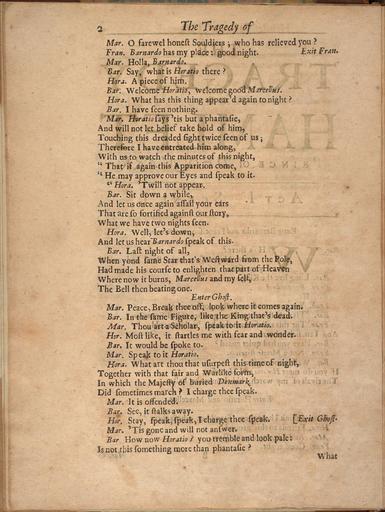 2 The Tragedy of
Mar. O farewel honest Souldiers; who has relieved you?
Fran. Barnardo has my place: good night. Exit Fran.
Mar. Holla, Barnardo.
Bar. Say, what is Horatio there?
Hora. A piece of him.
Bar. Welcome Horatio, welcome good Marcellus.
Hora. What has this thing appear'd again to night?
Bar. I have seen nothing.
Mar. Horatio says 'tis but a phantasie,
And will not let belief take hold of him,
Touching this dreaded sight twice seen of us;
Therefore I have entreated him along,
With us to watch the minutes of this night,
“ That if again this Apparition come,
“ He may approve our Eyes and speak to it.
“ Hora. 'Twill not appear.
Bar. Sit down a while,
And let us once again assail your ears
That are so fortified against our story,
What we have two nights seen.
Hora. Well, let's down,
And let us hear Barnardo speak of this.
Bar. Last night of all,
When yond same Star that's Westward from the Pole,
Had made his course to enlighten that part of Heaven
Where now it burns, Marcellus and my self,
The Bell then beating one.
Enter Ghost.
Mar. Peace, Break thee off, look where it comes again.
Bar. In the same Figure, like the King that's dead.
Mar. Thou art a Scholar, speak to it Horatio.
Hor. Most like, it startles me with fear and wonder.
Bar. It would be spoke to.
Mar. Speak to it Horatio.
Hora. What art thou that usurpest this time of night,
Together with that fair and Warlike form,
In which the Majesty of buried Denmark
Did sometimes march? I charge thee speak.
Mar. It is offended.
Bar. See, it stalks away.
Hor. Stay, speak, speak, I charge thee speak. [Exit Ghost.
Mar. 'Tis gone and will not answer.
Bar How now Horatio? you tremble and look pale:
Is not this something more than phantasie?
What